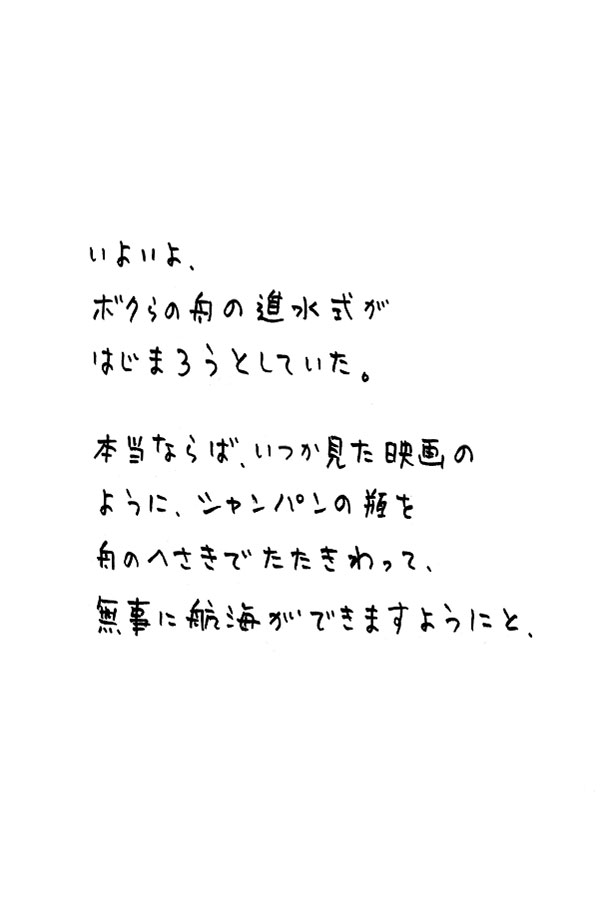 いよいよ、
ボクらの舟の進水式が
はじまろうとしていた。
本当ならば、いつか見た映画の
ように、シャンパンの瓶を
舟のへさきでたたきわって、
無事に航海ができますようにと、